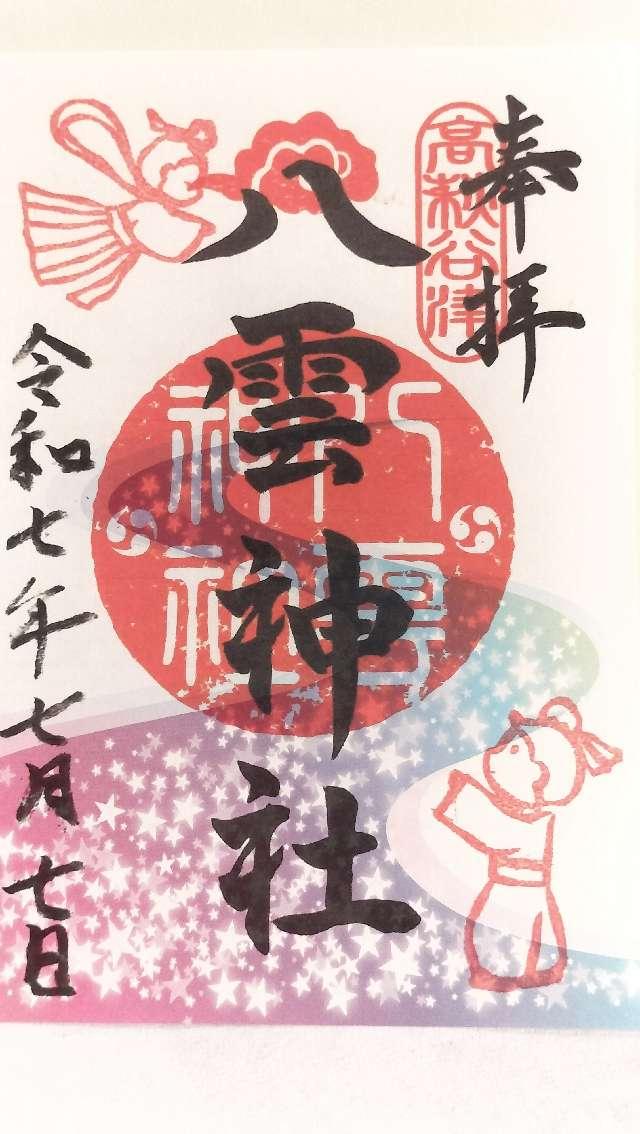 奉拝
高萩谷津
八雲神社
八雲
神社
令和七年七月七日